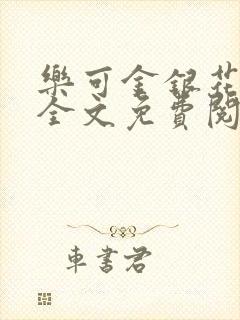 樂可金銀花
全文免費閱
車書君